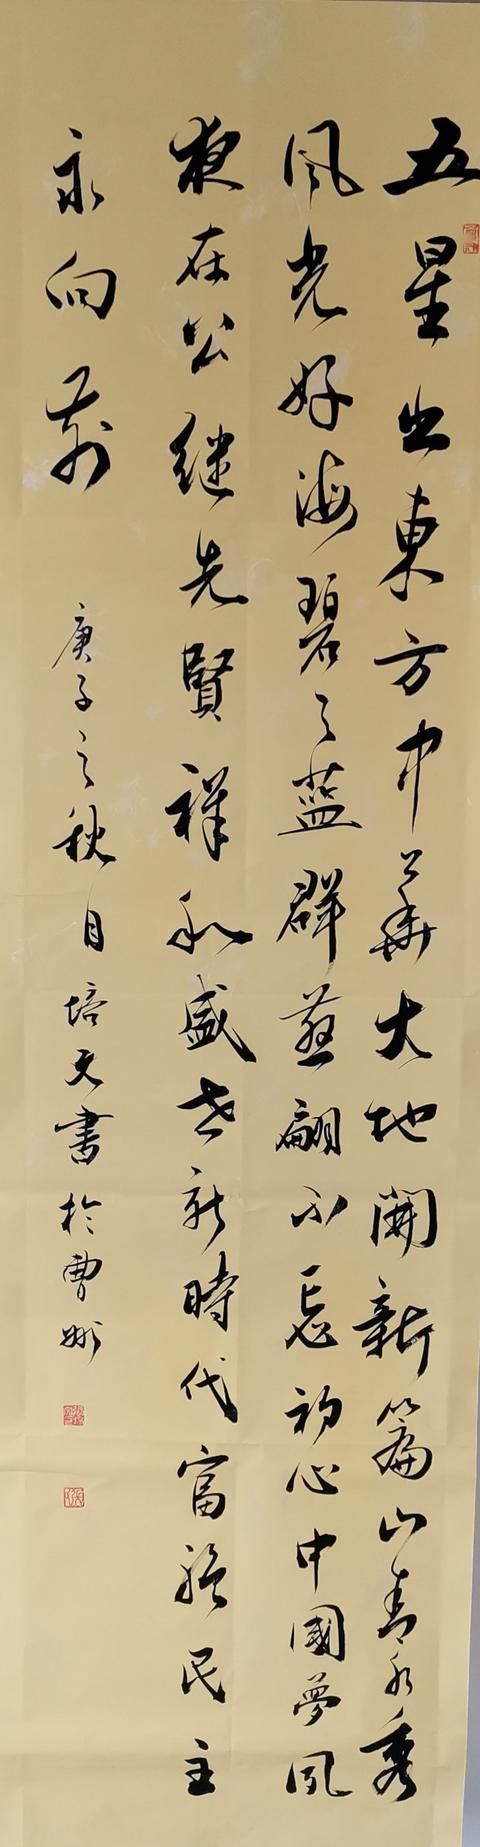 五星出東方中華大地開新篇山青水秀
風光好海碧之蓝群燕翩不忘初心中國夢風
夜在公继先賢祥和盛世新時代富强民主
永向前
庚子之秋月培天書於曹彬